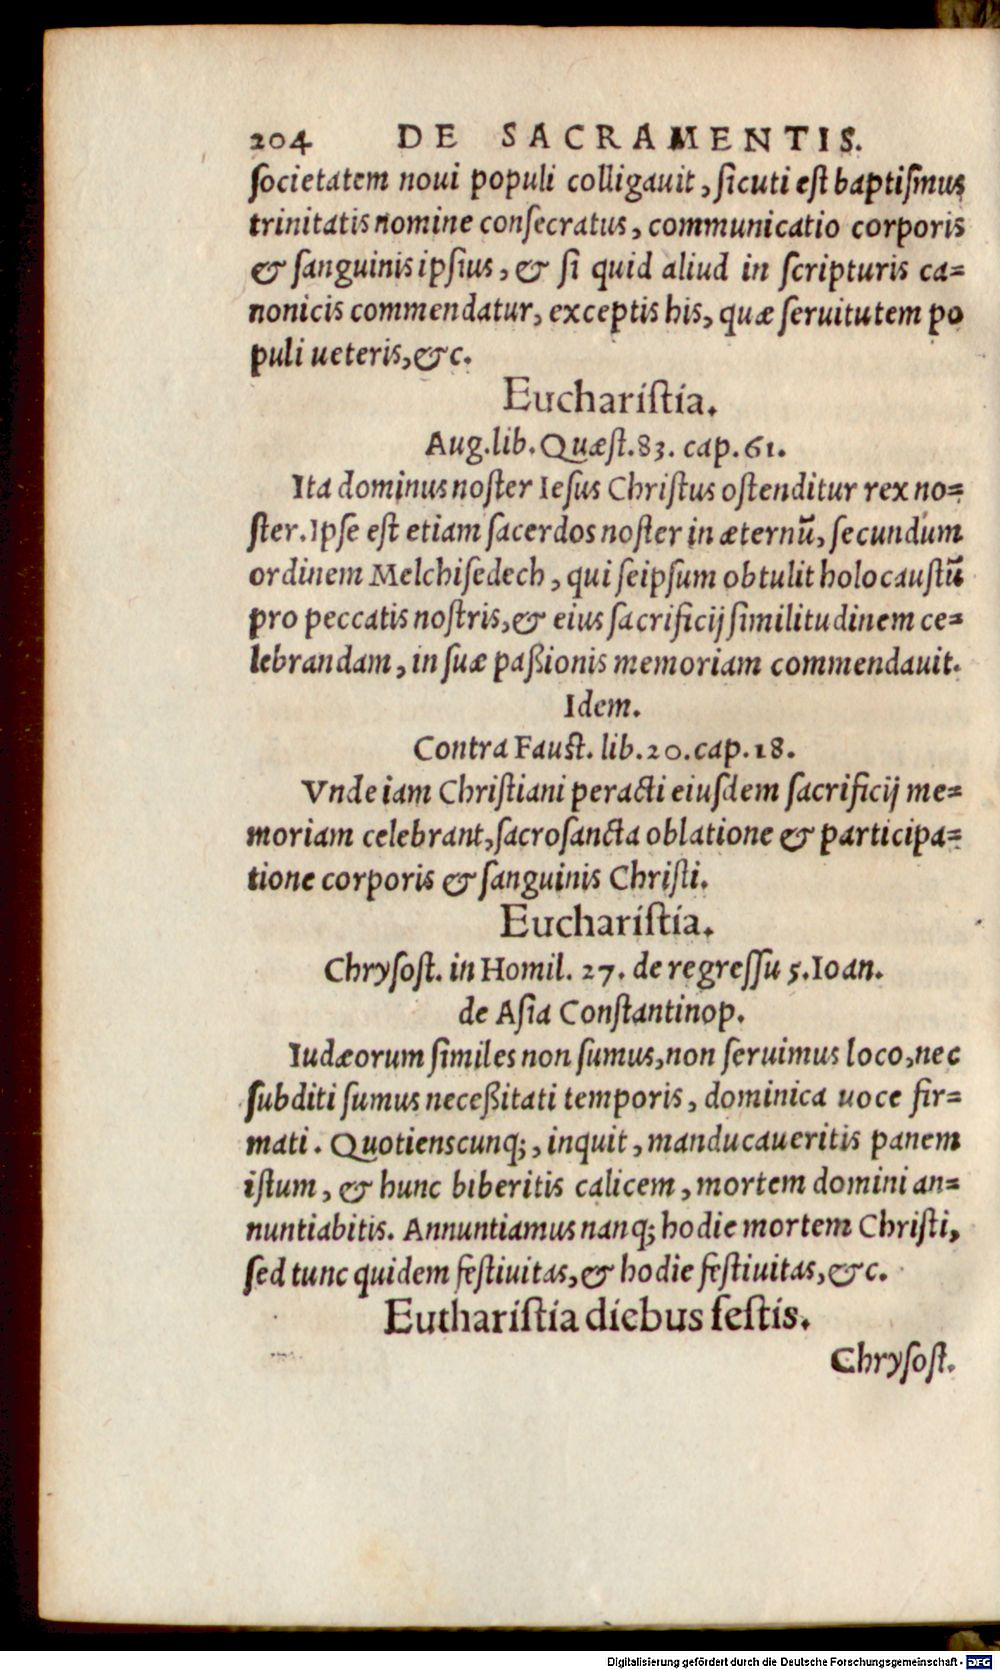 204 DE SACRAMENTIS.
ſocietatem noui populi colligauit, ſicuti eſt baptiſmus
trinitatis nomine conſecratus, communicatio corporis
& ſanguinis ipſius, & ſi quid aliud in ſcripturis ca=
nonicis commendatur, exceptis his, quæ ſeruitutem po
puli ueteris, &c.
Euchariſtia.
Aug. lib. Quæſt. 83. cap. 61.
Ita dominus noſter Ieſus Chriſtus oſtenditur rex no=
ſter. Ipſe eſt etiam ſacerdos noſter in æternũ, ſecundum
ordinem Melchiſedech, qui ſeipſum obtulit holocauſtũ
pro peccatis noſtris, & eius ſacrificij ſimilitudinem ce=
lebrandam, in ſuæ paßionis memoriam commendauit.
Idem.
Contra Fauſt. lib. 20. cap. 18.
Vnde iam Chriſtiani peracti eiuſdem ſacrificij me=
moriam celebrant, ſacroſancta oblatione & participa=
tione corporis & ſanguinis Chriſti.
Euchariſtia.
Chryſoſt. in Homil. 27. de regreſſu 5. Ioan.
de Aſia Conſtantinop.
Iudæorum ſimiles non ſumus, non ſeruimus loco, nec
ſubditi ſumus neceßitati temporis, dominica uoce fir=
mati. Quotienscunq;, inquit, manducaueritis panem
iſtum, & hunc biberitis calicem, mortem domini an=
nuntiabitis. Annuntiamus nanq; hodie mortem Chriſti,
ſed tunc quidem feſtiuitas, & hodie feſtiuitas, &c.
Euthariſtia diebus feſtis.
Chryſoſt.
Digitalisierung gefördert durch die Deutsche Forschungsgemeinschaft - DFG